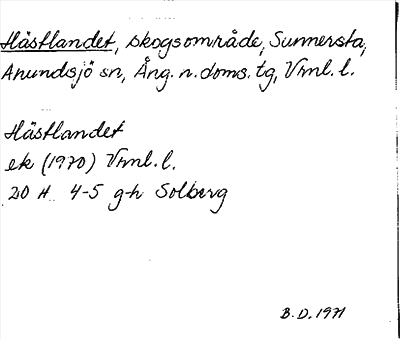 Hästlandet, skogsområde, Sunnersta,
Anundsjö sn, Ång. n. doms. tg, Vrnl. l.
Hästlandet
ek (1970) Vrnl. l.
20 H 4-5 g-h Solberg
B. D. 1971